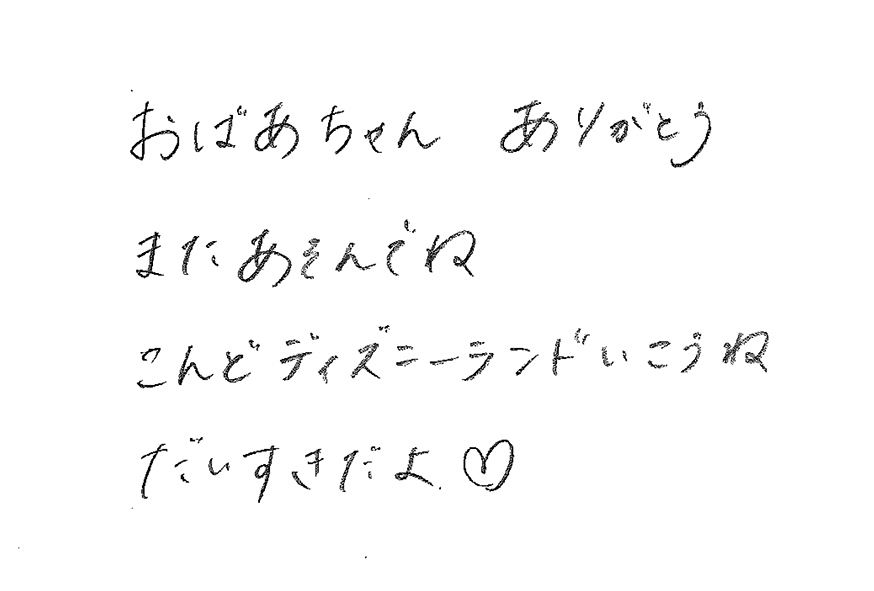 おばあちゃん ありがとう
またあそんでね
こんどディズニーランドいこうね
だいすきだよ♡